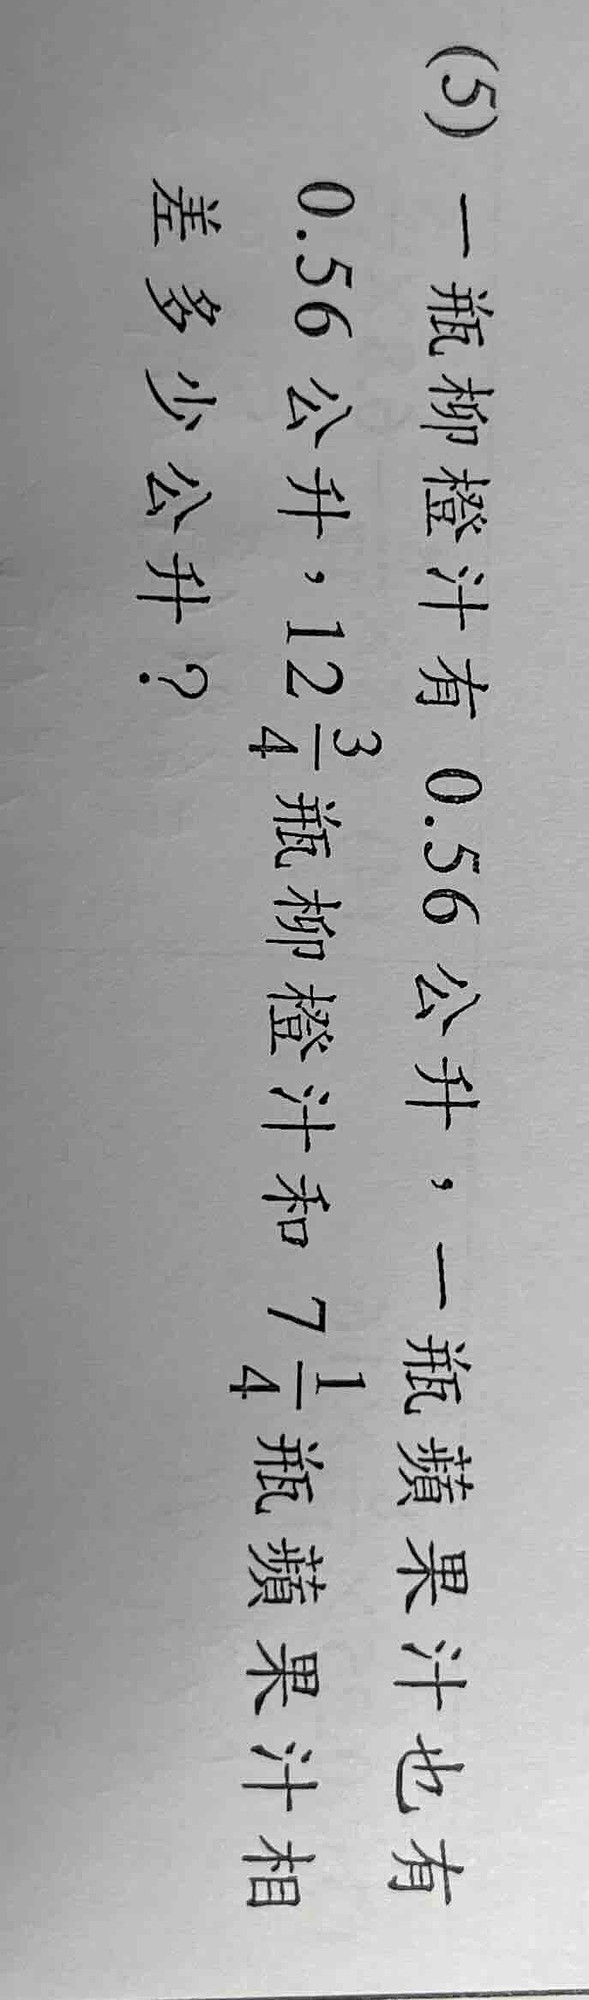 (5) 一瓶柳橙汁有 0.56 公升，一瓶蘋果汁也有
0.56 公升，12 3/4 瓶柳橙汁和 7 1/4 瓶蘋果汁相
差多少公升？